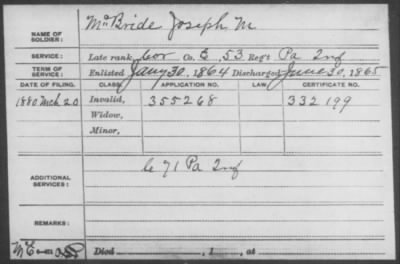 NAME OF SOLDIER: McBride Joseph M
SERVICE: Late rank, Cor Co. E, 53 Reg't Pa Inf
TERM OF SERVICE: Enlisted Jany 30, 1864 Discharged June 30, 1865
DATE OF FILING. CLASS. APPLICATION NO. LAW. CERTIFICATE NO.
1880 Mch 20 Invalid, 355268 332199
Widow,
Minor,
ADDITIONAL SERVICES: C 71 Pa Inf
REMARKS:
Died , 1 , at